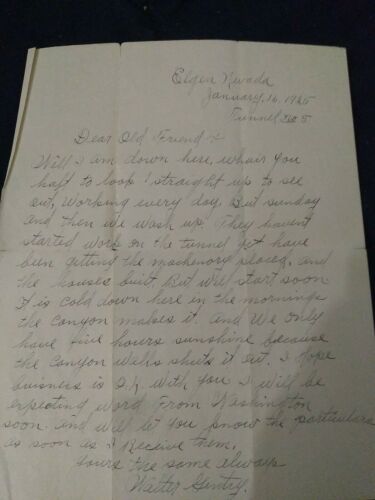 Elgin Nevada
January. 16, 1925
Tunnel No 5
Dear Old Friend :-
Well I am down here, whair you
haft to loop! straight up to see
out, working every day, But sunday
and then we wash up. They havent
started work on the tunnel yet have
been getting the machenory placed, and
the houses built. But will start soon
It is cold down here in the mornings
the canyon makes it. and we only
have five hours sunshine because
the canyon walls shuts it out. I hope
buisness is O.K. with you I will be
expecting word from Washington
soon. and will let you know the particulars
as soon as I receive them.
Yours the same always
Walter Gentry.